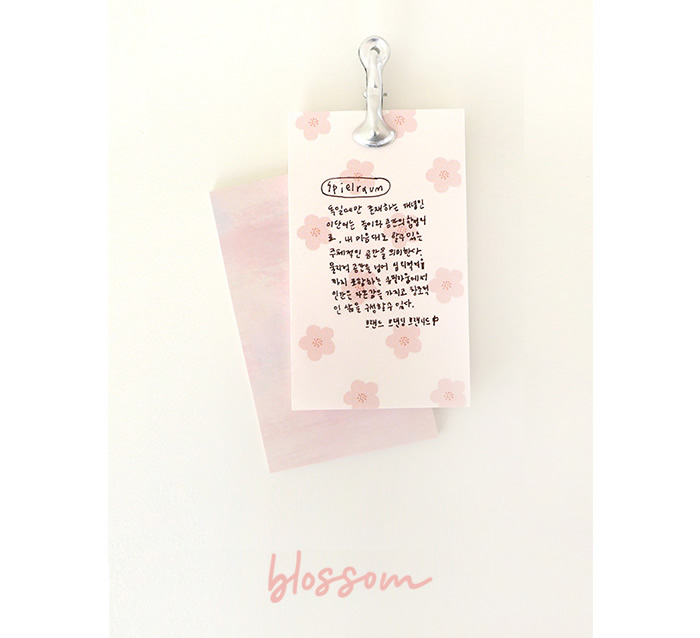 Spielraum
독일에만 존재하는 개념인
이 단어는 놀이와 공간의 합성어
로, 내 마음대로 할 수 있는
주체적인 공간을 의미한다.
물리적 공간을 넘어 심리적 여유
까지 포함하는 슈필라움에서
인간은 자존감을 가지고 창조적
인 삶을 구성할 수 있다.
브랜드 브랜딩 브랜디드
blossom